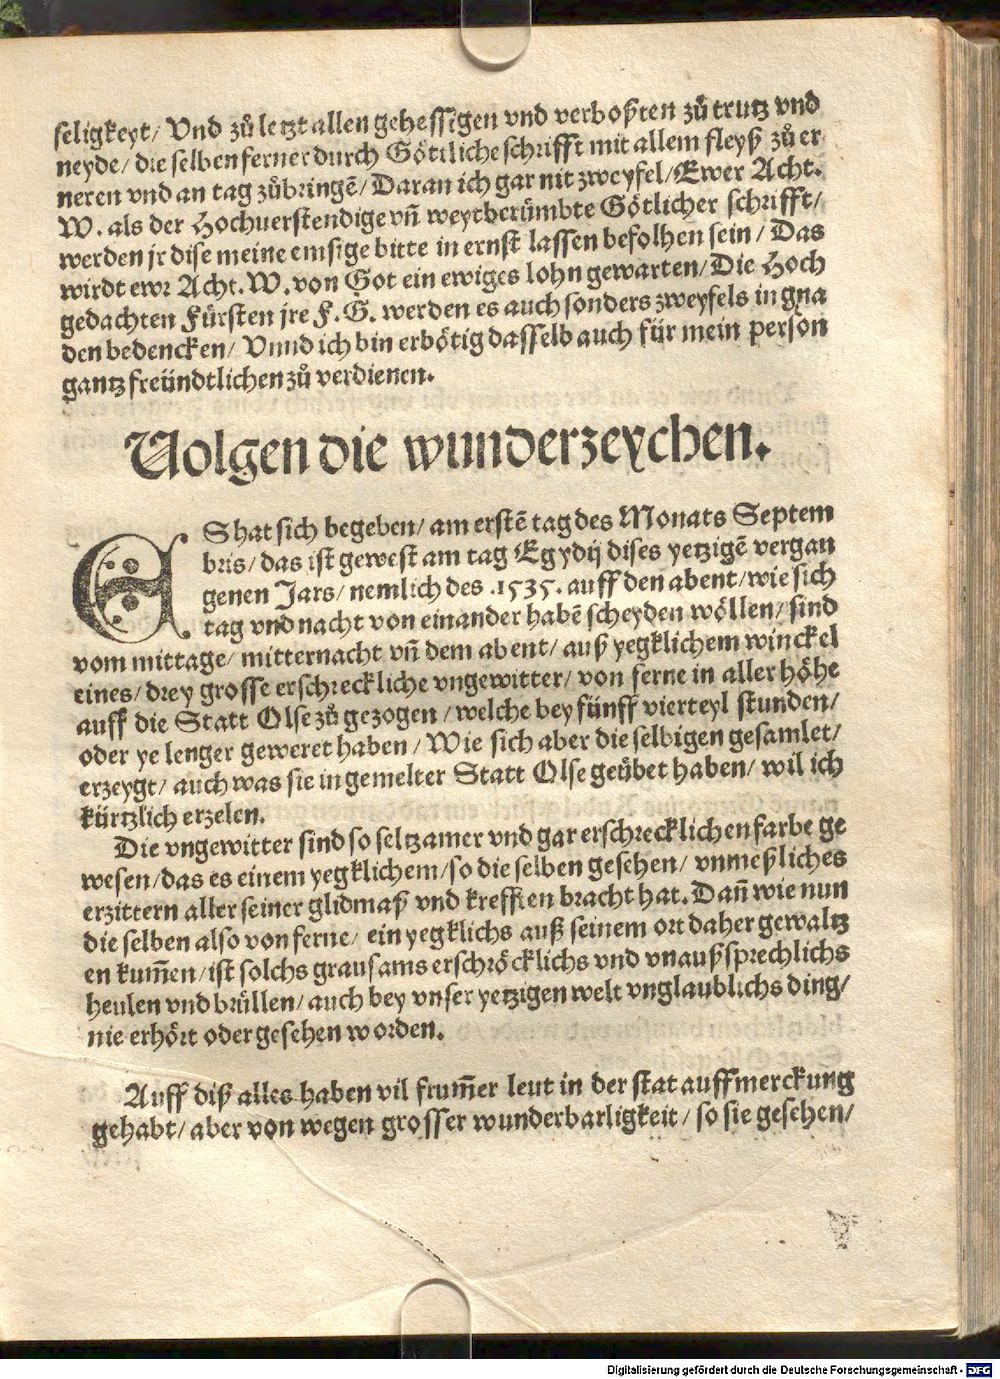 seligkeyt/ Vnd zů letzt allen gehessigen vnd verboßten zů trutz vnd
neyde/ die selben ferner durch Göttliche schrifft mit allem fleyß zů er
neren vnd an tag zůbringẽ/ Daran ich gar nit zweyfel/ Ewer Acht.
W. als der Hochuerstendige vñ weytberümbte Götlicher schrifft/
werden jr dise meine emsige bitte in ernst lassen befolhen sein/ Das
wirdt ewr Acht. W. von Got ein ewiges lohn gewarten/ Die Hoch
gedachten Fürsten jre F. G. werden es auch sonders zweyfels in gna
den bedencken/ Vnnd ich bin erbötig dasselb auch für mein person
gantz freündtlichen zů verdienen.
Volgen die wunderzeychen.
ES hat sich begeben/ am erstẽ tag des Monats Septem
bris/ das ist gewest am tag Egydij dises yetzigẽ vergan
genen Jars/ nemlich des .1535. auff den abent/ wie sich
tag vnd nacht von einander habẽ scheyden wöllen/ sind
vom mittage/ mitternacht vñ dem abent/ auß yegklichem winckel
eines/ drey grosse erschreckliche vngewitter/ von ferne in aller höhe
auff die Statt Olse zů gezogen/ welche bey fünff vierteyl stunden/
oder ye lenger geweret haben/ Wie sich aber die selbigen gesamlet/
erzeygt/ auch was sie in gemelter Statt Olse geübet haben/ wil ich
kürtzlich erzelen.
Die vngewitter sind so seltzamer vnd gar erschrecklichen farbe ge
wesen/ das es einem yegklichem/ so die selben gesehen/ vnmeßliches
erzittern aller seiner glidmaß vnd krefften bracht hat. Dañ wie nun
die selben also von ferne/ ein yegklichs auß seinem ort daher gewaltz
en kum̃en/ ist solchs grausams erschröcklichs vnd vnaußsprechlichs
heulen vnd brüllen/ auch bey vnser yetzigen welt vnglaublichs ding/
nie erhört oder gesehen worden.
Auff diß alles haben vil frum̃er leut in der stat auffmerckung
gehabt/ aber von wegen grosser wunderbarligkeit/ so sie gesehen/
Digitalisierung gefördert durch die Deutsche Forschungsgemeinschaft - DFG